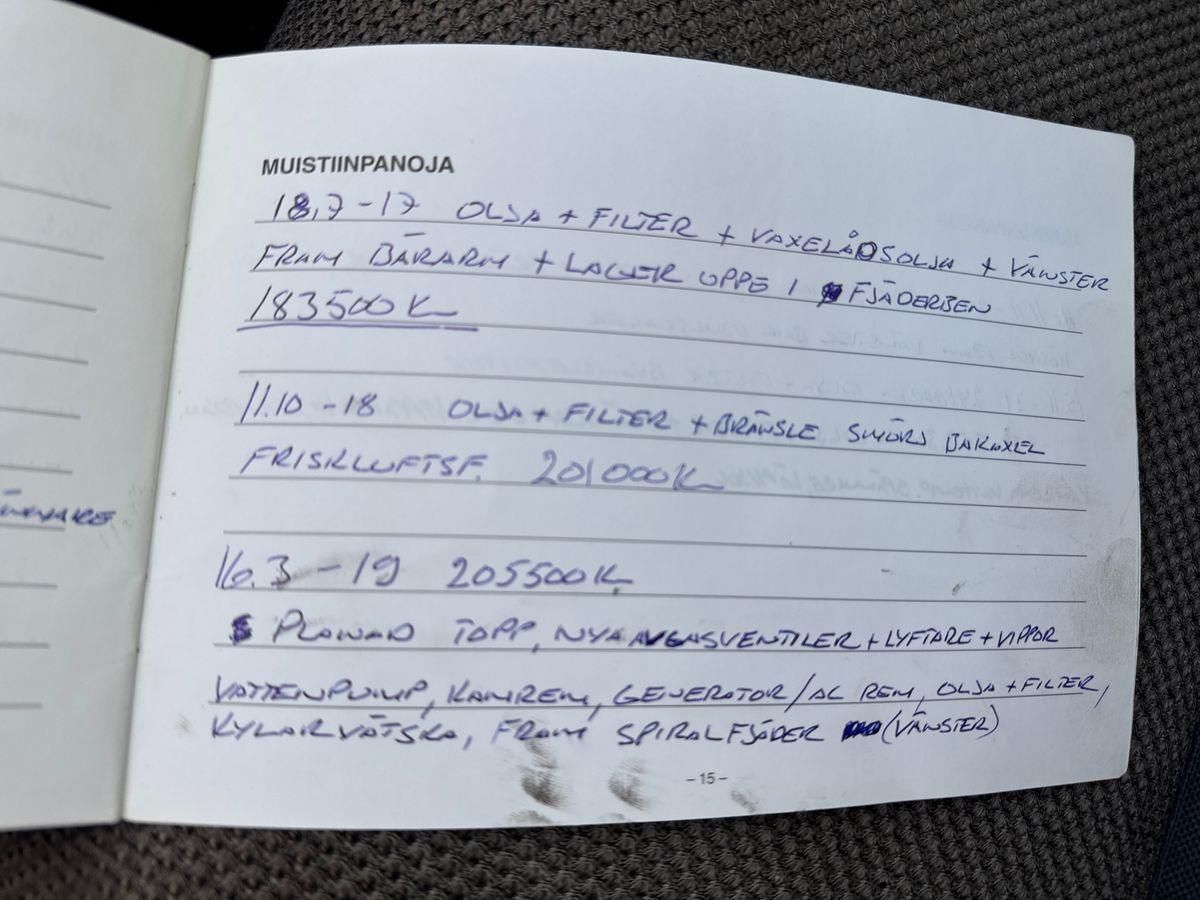 MUISTIINPANOJA
18.7-17 OLJA + FILTER + VÄXELÅDSOLJA + VÄNSTER
FRAM BÄRARM + LAGER UPPE I FJÄDERBEN
183500K
11.10-18 OLJA + FILTER + BRÄNSLE SMÖRJ BAKAXEL
FRISKLUFTSF. 201000K
16.3-19 205500K
PLANAD TOPP, NYA AVGASVENTILER + LYFTARE + VIPPOR
VATTENPUMP, KAMREM, GENERATOR/AC REM, OLJA + FILTER,
KYLARVÄTSKA, FRAM SPIRALFJÄDER (VÄNSTER)
-15-